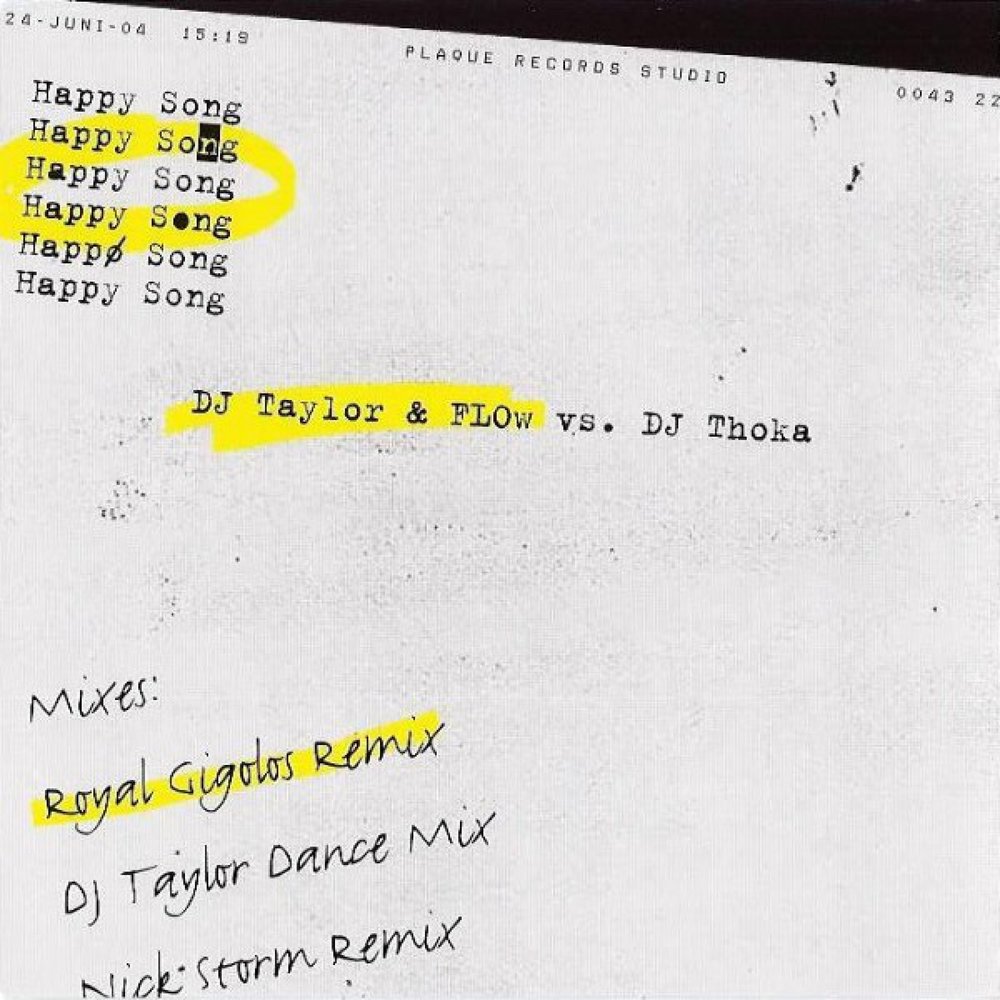 24-JUNI-04 15:19 PLAQUE RECORDS STUDIO 0043 22
Happy Song
Happy Song
Happy Song
Happy S●ng
Happø Song
Happy Song
DJ Taylor & FLOw vs. DJ Thoka
Mixes:
Royal Gigolos Remix
DJ Taylor Dance Mix
Nick Storm Remix